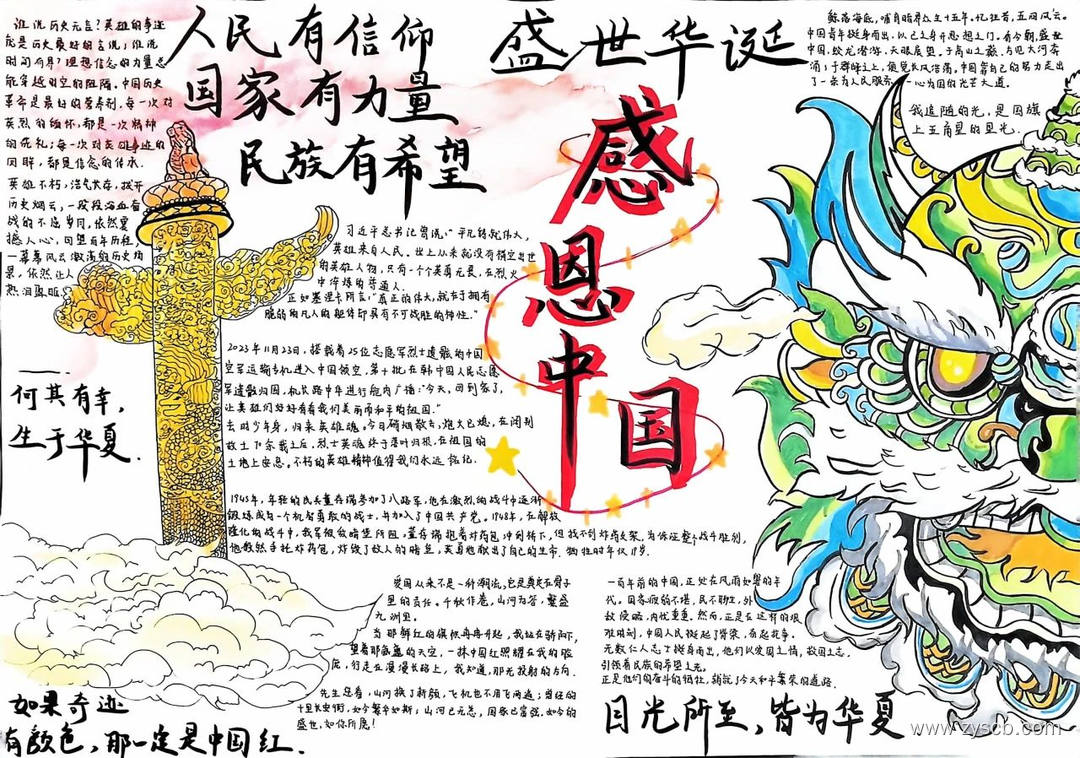 谁说历史无言?英雄的事迹
就是历史最好的言说,谁说
时间有身?理想信念的力量总
能穿越时空的阻隔。中国历史
革命是最好的营养剂,每一次对
英烈的缅怀,都是一次精神
的洗礼;每一次对英雄事迹的
回眸,都是信念的传承.
英雄不朽,浩气长存,拨开
历史烟云,一段段浴血奋
战的不屈岁月,依然震
撼人心,回望百年历程,
一幕幕风云激荡的历史场
景,依然让人
热泪盈眶
人民有信仰
国家有力量
民族有希望
盛世华诞
感恩中国
中国青年挺身而出,以己之身开思想之门。看今朝,盛世
中国,蛟龙潜游,天眼展望,于高山之巅,方见大河奔
涌;于群峰之上,便觉长风浩荡。中国靠自己的努力走出
了一条为人民服务,一心为国的光芒大道。
我追随的光,是国旗
上五角星的星光.
习近平总书记曾说:"平凡铸就伟大,
英雄来自人民。世上从来就没有横空出世
的英雄人物,只有一个个英勇无畏,在烈火
中淬炼的普通人.
正如塞涅卡所言:"真正的伟大,就在于拥有
脆弱的凡人的躯体却具有不可战胜的神性."
2023年11月23日,搭载着25位志愿军烈士遗骸的中国
空军运输专机进入中国领空。第十批在韩中国人民志愿
军遗骸归国,机长路中年进行舱内广播:"今天,回到家了,
让英雄们好好看看我们美丽而和平的祖国."
去时少年身,归来英雄魂,今日硝烟散去,炮火已熄,在阔别
故土70余载之后,烈士英魂终于落叶归根,在祖国的
土地上安息。不朽的英雄精神值得我们永远铭记.
何其有幸,
生于华夏.
1945年,年轻的民兵董存瑞参加了八路军,他在激烈的战斗中逐渐
锻炼成为一个机智勇敢的战士,并加入了中国共产党。1948年,在解放
隆化的战斗中,我军被敌暗堡所阻,董存瑞抱着炸药包冲到桥下,但找不到炸药支架,为保证整个战斗胜利,
他毅然手托炸药包,炸毁了敌人的暗堡,英勇地献出了自己的生命.牺牲时年仅19岁.
爱国从来不是一种潮流,它是奠定在骨子
里的责任。千秋作卷,山河为答,繁盛
九洲里。
当那鲜红的旗帜冉冉升起,我站在骄阳下,
望着那蔚蓝的天空,一抹中国红照耀在我的脸
庞,行走在漫漫长路上,我知道,那光投射的方向.
先生您看,山河换了新颜,飞机也不用飞两遍;曾经的
十里长安街,如今繁华如斯;山河已无恙,国家已富强.如今的
盛世,如你所愿!
一百年前的中国,正处在风雨如磐的年
代。国家破败不堪,民不聊生,外
敌侵略,内忧重重。然而,正是在这样的艰
难时刻,中国人民挺起了脊梁,奋起抗争。
无数仁人志士挺身而出,他们以爱国之情,救国之志,
引领着民族的希望之光。
正是他们的奋斗的牺牲,铸就了今天和平繁荣的道路.
如果奇迹
有颜色,那一定是中国红.
目光所至,皆为华夏
www.zyscb.com